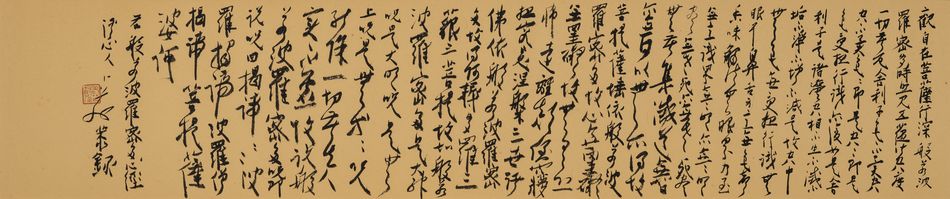 觀自在菩薩行深般若波
羅蜜多時照見五蘊皆空度
一切苦厄舍利子色不異空
空不異色色即是空空即是
色受想行識亦復如是舍
利子是諸法空相不生不滅不
垢不淨不增不減是故空中
無色無受想行識無
眼耳鼻舌身意無色聲
香味觸法無眼界乃至
無意識界無無明亦無無明
盡乃至無老死亦無老死
盡無苦集滅道無智
亦無得以無所得故
菩提薩埵依般若波
羅蜜多故心無罣礙
無罣礙故無有恐
怖遠離顛倒夢
想究竟涅槃三世諸
佛依般若波羅蜜
多故得阿耨多羅三
藐三菩提故知般若
波羅蜜多是大神
咒是大明咒是無
上咒是無等等咒
能除一切苦
真實不虛故說般
若波羅蜜多咒即
說咒曰揭諦揭諦波
羅揭諦波羅僧
揭諦菩提薩
婆訶
般若波羅蜜多心經
心人 錄